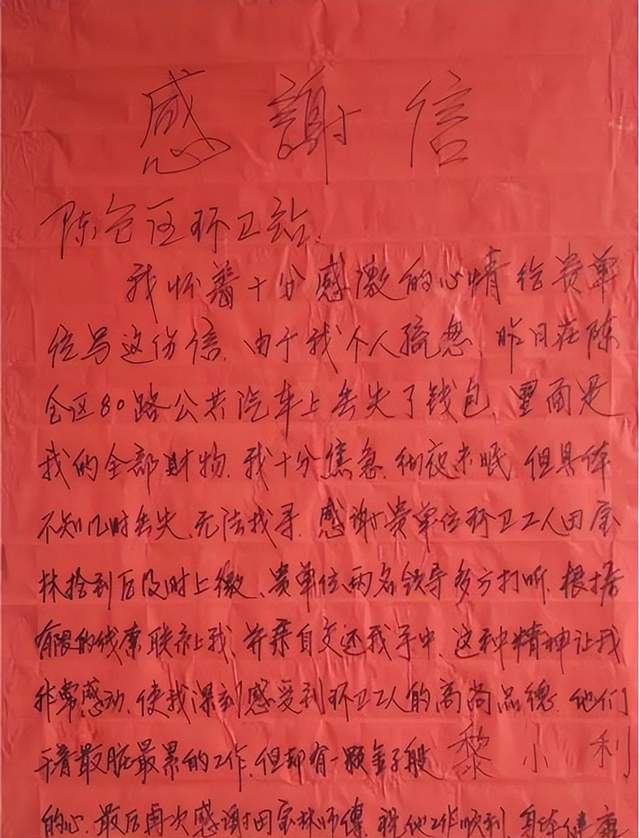 感謝信
陈仓区环卫站.
我怀着十分感激的心情给贵单
位写这份信.由于我个人疏忽 昨日在陈
仓区80路公共汽车上丢失了钱包.里面是
我的全部財物.我十分焦急.彻夜未眠 但具体
不知几时丢失.无法找寻.感谢贵单位环卫工人田宝
林捡到后及时上缴、贵单位两名领导多方打听.根据
有限的线索联系上我.并亲自交还我手中.这种精神让我
非常感动.使我深刻感受到环卫工人的高尚品德.他们
干着最脏最累的工作.但却有一颗金子般 黎小利
的心.最后再次感谢田宝林师傅 祝他工作顺利 身体健康